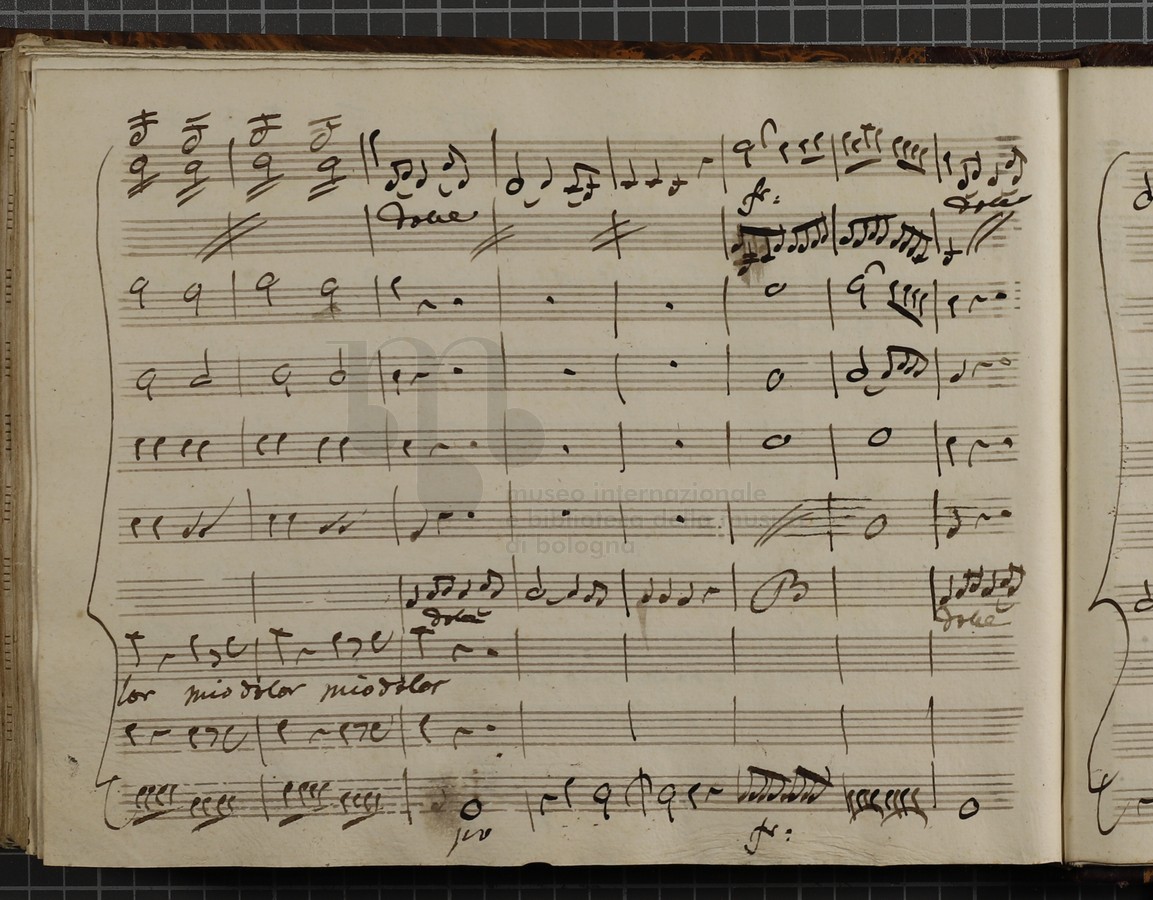 dolce
fr:
dolce
museo internazionale
e biblioteca della musica
di bologna
dolce
dolce
lor mio dolor mio dolor
pro
fr: